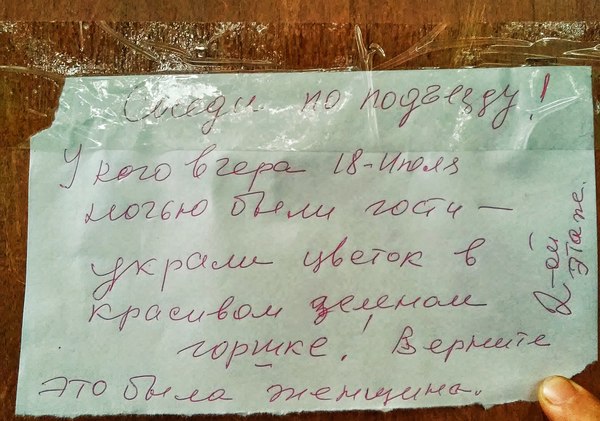 Соседи по подъезду!
У кого вчера 18-Июля
ночью были гости —
украли цветок в
красивом зеленом
горшке! Верните
это была женщина.
2-ой
этаж.